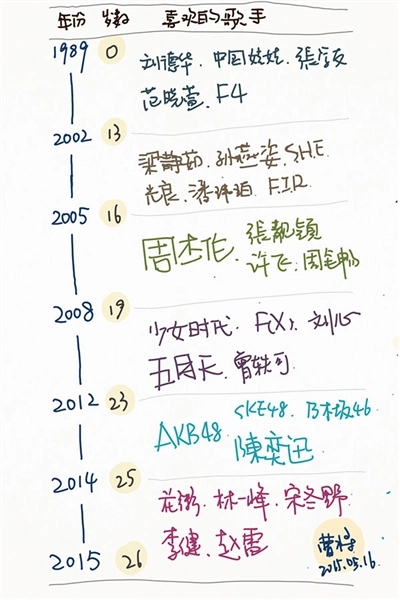 年份 岁数 喜欢的歌手
1989 0
刘德华、中国娃娃、張学友
范晓萱、F4
2002 13
梁静茹、孙燕姿、S.H.E
光良、潘玮柏、F.I.R
2005 16
周杰伦、張靓颖
许飞、周笔畅
2008 19
少女时代、F(X)、刘心
五月天、曾轶可
2012 23
SKE48、乃木坂46
AKB48
陳奕迅
2014 25
花粥、林一峰、宋冬野
李健、赵雷
2015 26
2015.05.16